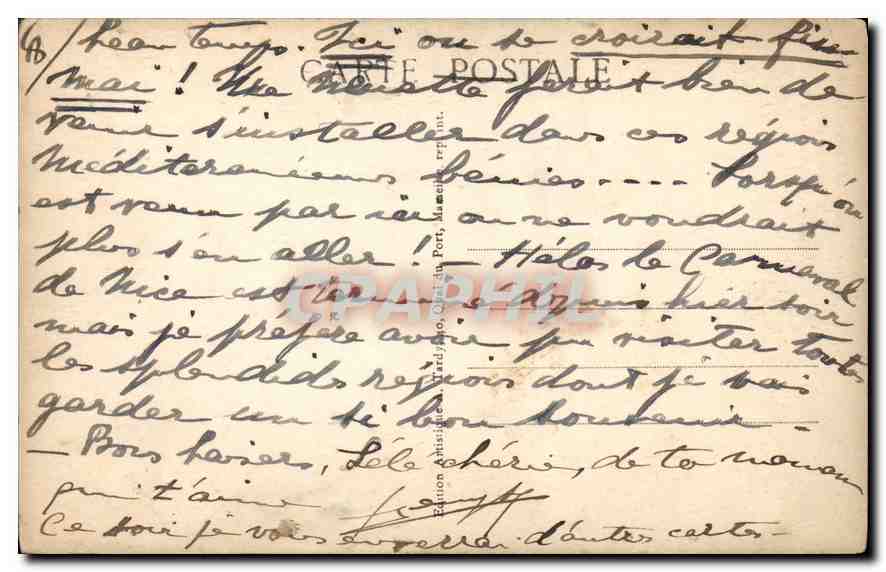 beau temps. Ici on se croirait fin
CARTE POSTALE
mai ! Une Minette ferait bien de
venir s'installer dans ces régions
Méditerranéennes bénies ---- Lorsqu'on
est venu par ici on ne voudrait
plus s'en aller ! - Hélas le Carneval
de Nice est terminé depuis hier soir
mais je préfère avoir pu visiter toutes
les splendides régions dont je vais
garder un si bon souvenir -
- Bons baisers, Léle chérie, de ta maman
qui t'aime
Ce soir je vous enverrai d'autres cartes -
Edition Artistique Tardy, Quai du Port, Marseille, reprint.
CPAPHIL